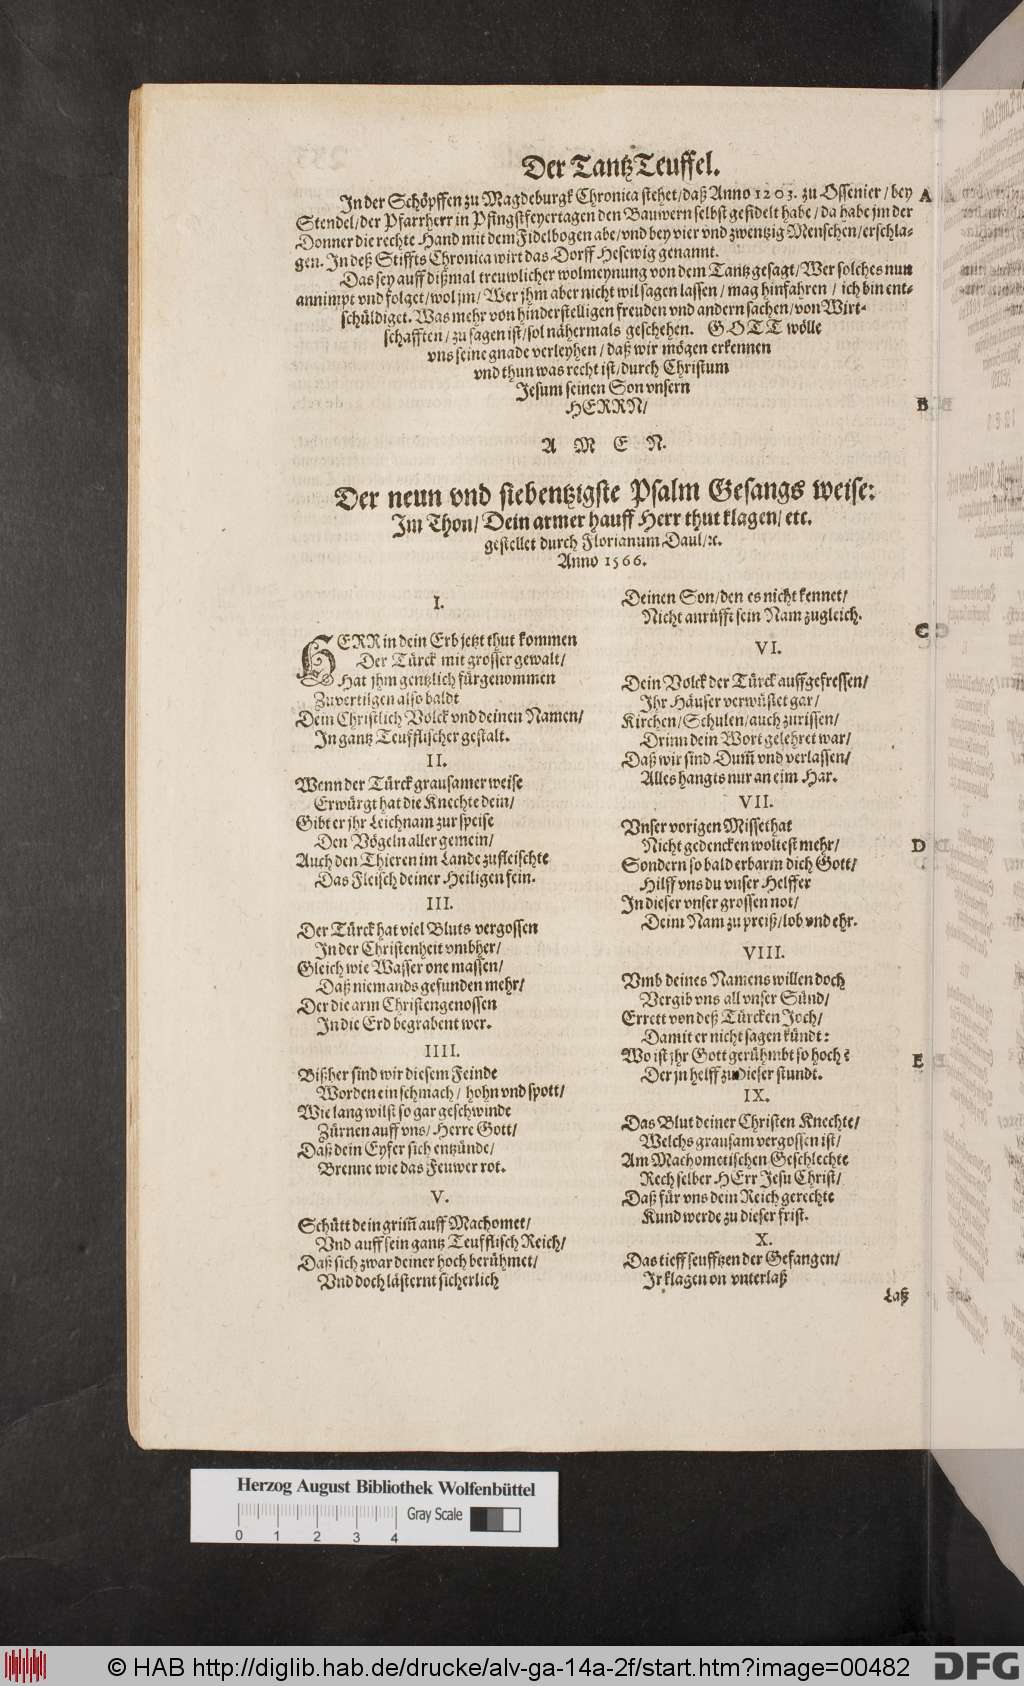 Der TantzTeuffel.
In der Schöpffen zu Magdeburgk Chronica stehet/daß Anno 1203. zu Ossenier/bey
Stendel/der Pfarrherr in Pfingstfeyertagen den Bauwern selbst gefidelt habe/da habe jm der
Donner die rechte Hand mit dem Fidelbogen abe/vnd bey vier vnd zwentzig Menschen/erschla-
gen. In deß Stiffts Chronica wirt das Dorff Hesewig genannt.
Das sey auff dißmal treuwlicher wolmeynung von dem Tantz gesagt/Wer solches nun
annimpt vnd folget/wol jm/Wer jhm aber nicht wil sagen lassen/mag hinfahren/ich bin ent-
schüldiget. Was mehr von hinderstelligen freuden vnd andern sachen/von Wirt-
schafften/zu sagen ist/sol nähermals geschehen. GOTT wölle
vns seine gnade verleyhen/daß wir mögen erkennen
vnd thun was recht ist/durch Christum
Jesum seinen Son vnsern
HERRN/
A M E N.
A
B
C
D
E
Der neun vnd siebentzigste Psalm Gesangs weise:
Im Thon/Dein armer hauff Herr thut klagen/etc.
gestellet durch Florianum Daul/ꝛc.
Anno 1566.
I.
HERR in dein Erb jetzt thut kommen
Der Türck mit grosser gewalt/
Hat jhm gentzlich fürgenommen
Zuvertilgen also baldt
Dein Christlich Volck vnd deinen Namen/
In gantz Teufflischer gestalt.
II.
Wenn der Türck grausamer weise
Erwürgt hat die Knechte dein/
Gibt er jhr Leichnam zur speise
Den Vögeln aller gemein/
Auch den Thieren im Lande zufleischte
Das Fleisch deiner Heiligen fein.
III.
Der Türck hat viel Bluts vergossen
In der Christenheit vmbher/
Gleich wie Wasser one massen/
Daß niemands gefunden mehr/
Der die arm Christengenossen
In die Erd begrabent wer.
IIII.
Bißher sind wir diesem Feinde
Worden ein schmach/hohn vnd spott/
Wie lang wilst so gar geschwinde
Zürnen auff vns/Herre Gott/
Daß dein Eyfer sich entzünde/
Brenne wie das Feuwer rot.
V.
Schütt dein grim̃ auff Machomet/
Vnd auff sein gantz Teufflisch Reich/
Daß sich zwar deiner hoch berühmet/
Vnd doch lästernt sicherlich
Deinen Son/den es nicht kennet/
Nicht anrüfft sein Nam zugleich.
VI.
Dein Volck der Türck auffgefressen/
Ihr Häuser verwüstet gar/
Kirchen/Schulen/auch zurissen/
Drinn dein Wort gelehret war/
Daß wir sind Dum̃ vnd verlassen/
Alles hangts nur an eim Har.
VII.
Vnser vorigen Missethat
Nicht gedencken woltest mehr/
Sondern so bald erbarm dich Gott/
Hilff vns du vnser Helffer
In dieser vnser grossen not/
Deim Nam zu preiß/lob vnd ehr.
VIII.
Vmb deines Namens willen doch
Vergib vns all vnser Sünd/
Errett von deß Türcken Joch/
Damit er nicht sagen kündt:
Wo ist jhr Gott gerühmbt so hoch?
Der jn helff zu dieser stundt.
IX.
Das Blut deiner Christen Knechte/
Welchs grausam vergossen ist/
Am Machometischen Geschlechte
Rech selber HErr Jesu Christ/
Daß für vns dein Reich gerechte
Kund werde zu dieser frist.
X.
Das tieff seufftzen der Gefangen/
Ir klagen on vnterlaß
Laß
Herzog August Bibliothek Wolfenbüttel
Gray Scale
0 1 2 3 4
© HAB http://diglib.hab.de/drucke/alv-ga-14a-2f/start.htm?image=00482
DFG